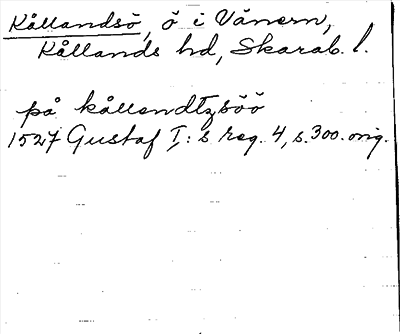 Kållandsö, ö i Vänern,
Kållands hd, Skarab. l.
på kållendtzöö
1527 Gustaf I:s reg. 4, s. 300. orig.